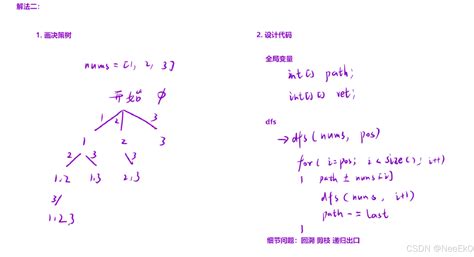 解法二：
1. 画决策树
nums = [1, 2, 3]
开始 ∅
1 2 3
1 2 3
2 3 3
1,2 1,3 2,3
3
1,2,3
2. 设计代码
全局变量
int[] path;
int[][] ret;
dfs
→ dfs(nums, pos)
for( i=pos; i<size(); i++)
{ path += nums[i]
dfs(nums, i+1)
path -= last
}
细节问题：回溯 剪枝 递归出口
CSDN @NeeEkO